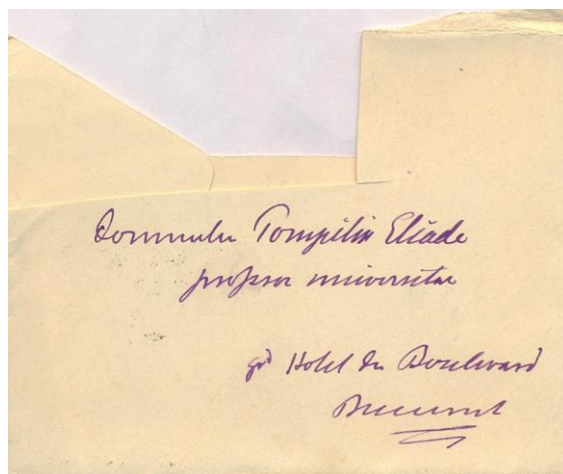 Domnului Pompiliu Eliade
profesor universitar
grd Hotel du Boulevard
Bucuresti